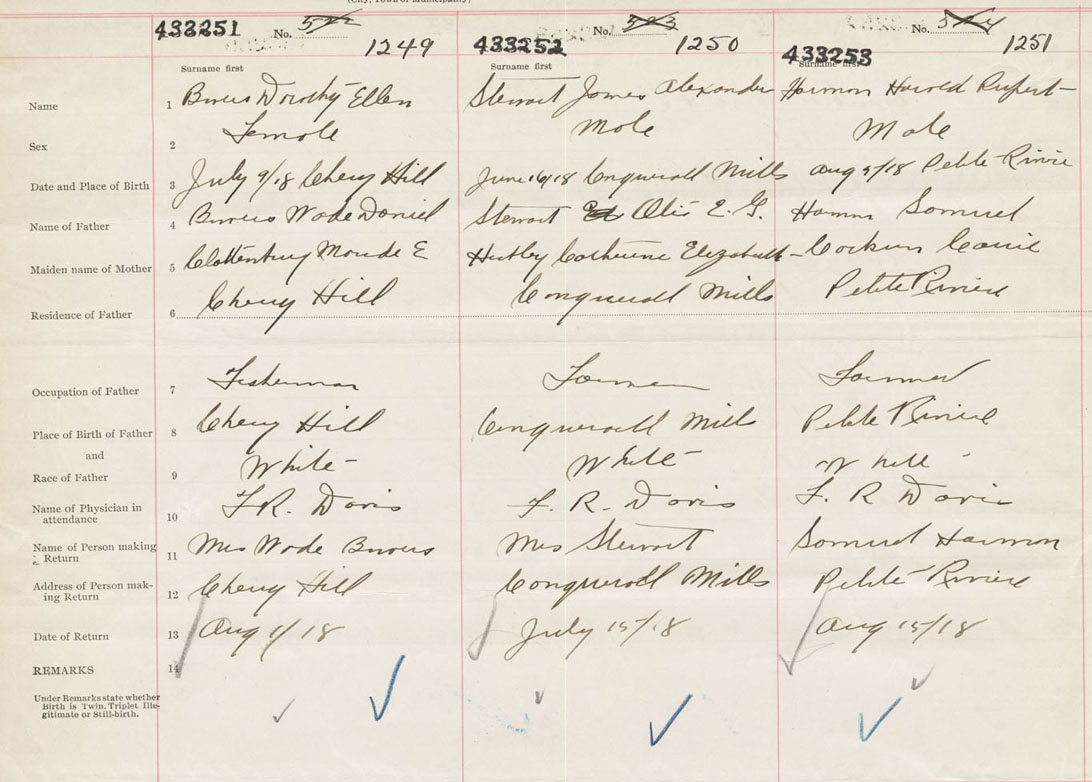 (City, Town or Municipality)
433251 No. 522 1249 433252 No. 523 1250 433253 No. 524 1251
Surname first Surname first Surname first
Name 1 Dorothy Ellen Stewart James Alexander Harmon Harold Rupert
Sex 2 Female Male Male
Date and Place of Birth 3 July 9/18 Cherry Hill June 16/18 Conquerall Mills Aug 9/18 Petite Riviere
Name of Father 4 Wade Daniel Stewart Otis E. G. Harmon Samuel
Maiden name of Mother 5 Maude E Catherine Elizabeth Carrie
Residence of Father 6 Cherry Hill Conquerall Mills Petite Riviere
Occupation of Father 7 Fisherman Farmer Farmer
Place of Birth of Father 8 Cherry Hill Conquerall Mills Petite Riviere
and
Race of Father 9 White White White
Name of Physician in
attendance 10 F. R. Davis F. R. Davis F. R Davis
Name of Person making
Return 11 Mrs Wade Mrs Stewart Samuel Harmon
Address of Person mak-
ing Return 12 Cherry Hill Conquerall Mills Petite Riviere
Date of Return 13 Aug 1/18 July 15/18 Aug 15/18
REMARKS 14
Under Remarks state whether
Birth is Twin, Triplet Ille-
gitimate or Still-birth.